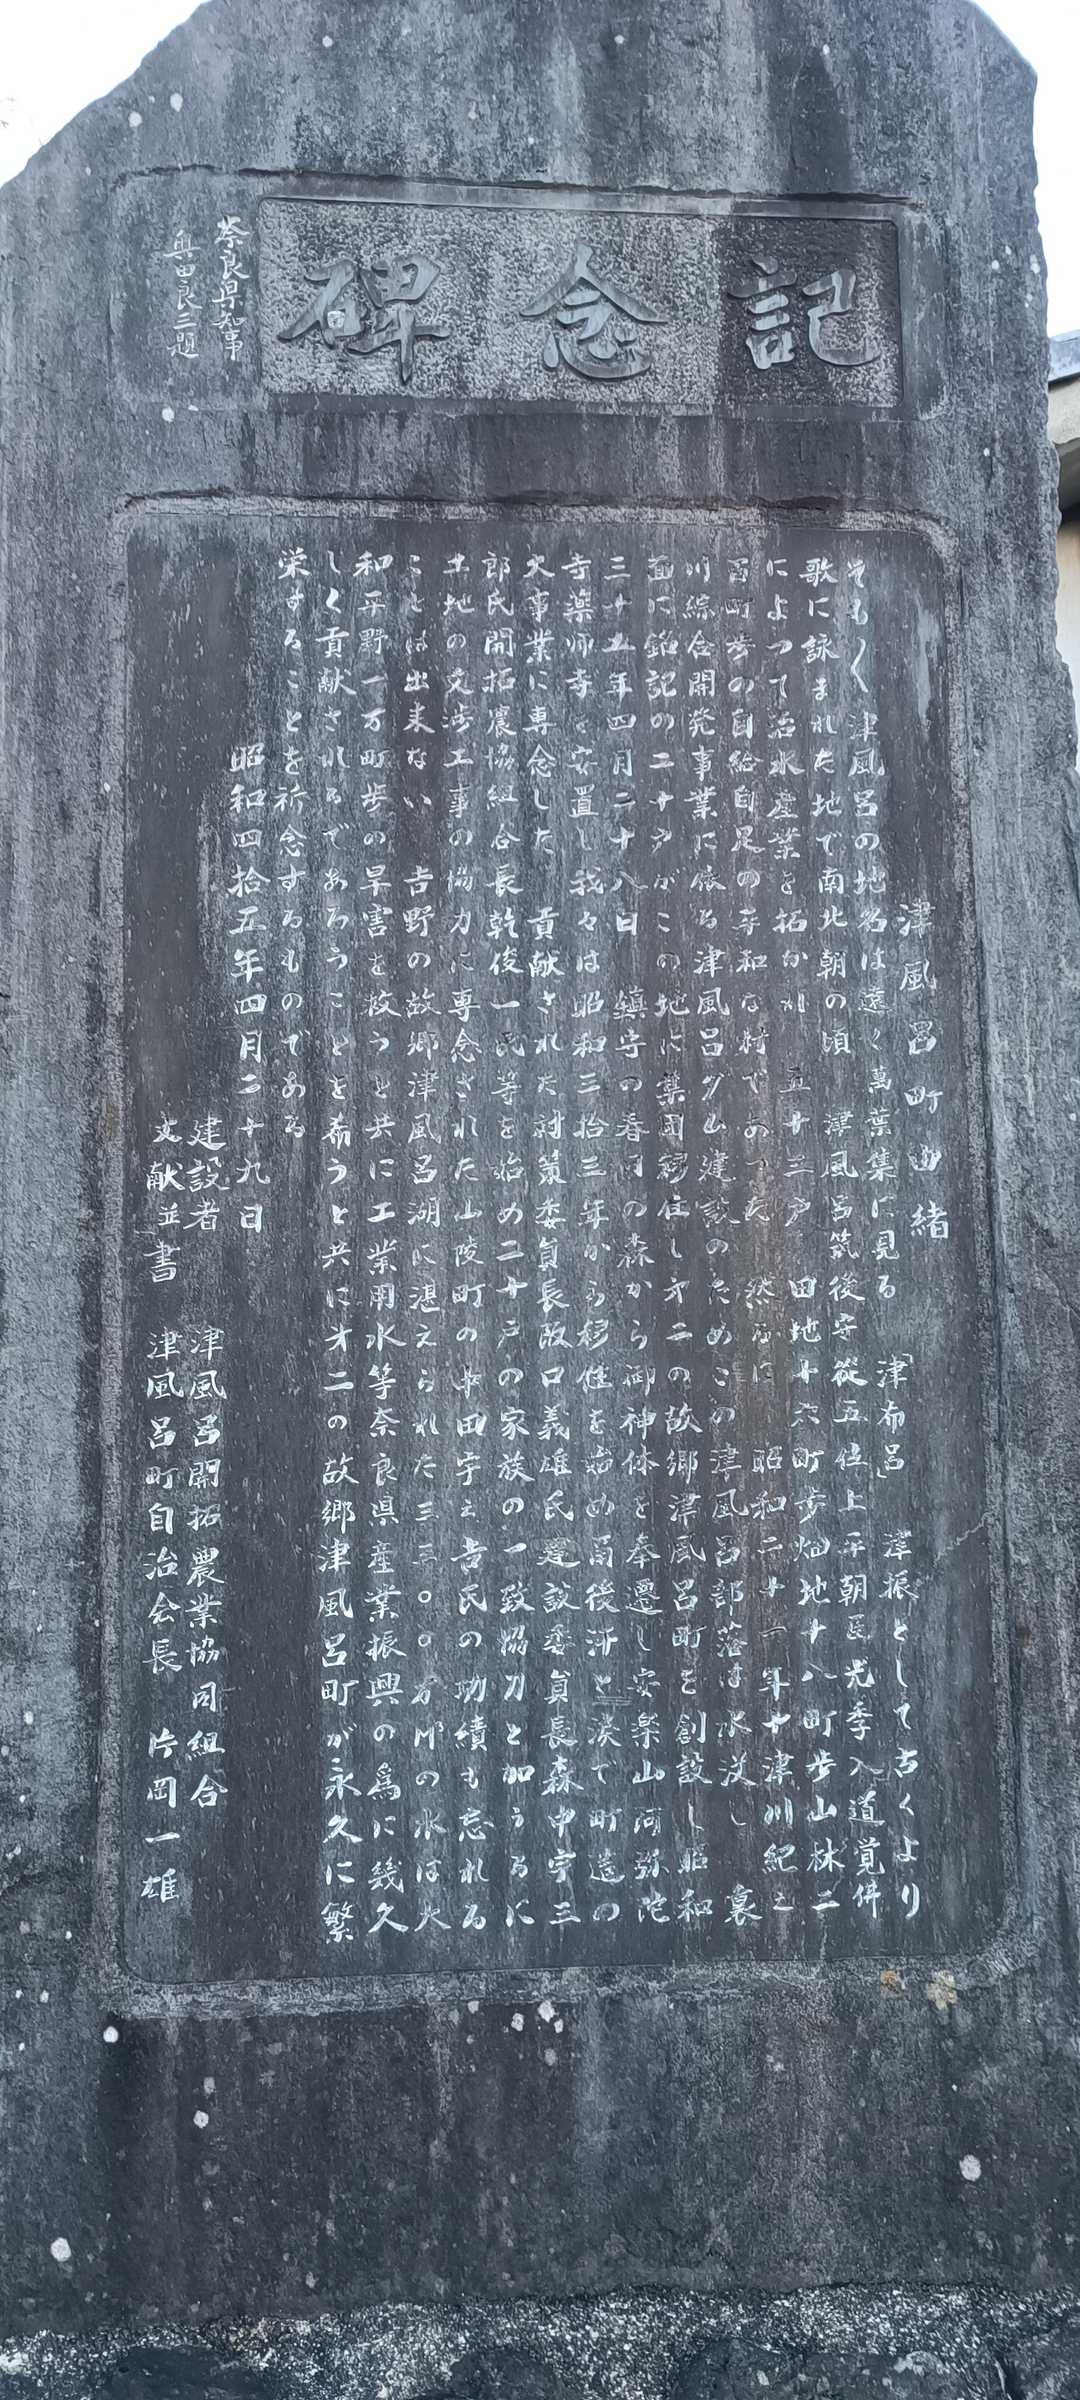 記念碑
奈良県知事
奥田良三題
津風呂町由緒
そも〱津風呂の地名は遠く萬葉集に見る「津布呂」津振として古くより
歌に詠まれた地で南北朝の頃 津風呂筑後守従五位上平朝臣光季入道覚併
によつて治水産業を拓かれ 五十三戸 田地十六町歩畑地十八町歩山林二
百町歩の自給自足の平和な村であつた 然るに 昭和二十一年十津川紀之
川綜合開発事業に依る津風呂ダム建設のためこの津風呂部落は水没し 裏
面に銘記の二十戸がこの地に集団移住し才二の故郷津風呂町を創設し昭和
三十五年四月二十八日 鎮守の春日の森から御神体を奉遷し安楽山阿弥陀
寺薬師寺を安置し我々は昭和三拾三年から移住を始め爾後漸と湊で町造の
大事業に専念した 貢献された対策委員長阪口義雄氏建設委員長森中宇三
郎氏開拓農協組合長乾俊一氏等を始め二十戸の家族の一致協力と加うるに
土地の交渉工事の協力に専念された山陵町の中田宇之吉氏の功績も忘れる
ことは出来ない 吉野の故郷津風呂湖に湛えられた三三〇〇万㎥の水は大
和平野一万町歩の旱害を救うと共に工業用水等奈良県産業振興の為に幾久
しく貢献されるであろうことを希うと共に才二の故郷津風呂町が永久に繁
栄することを祈念するものである
昭和四拾五年四月二十九日
建設者 津風呂開拓農業協同組合
文献並書 津風呂町自治会長 片岡一雄